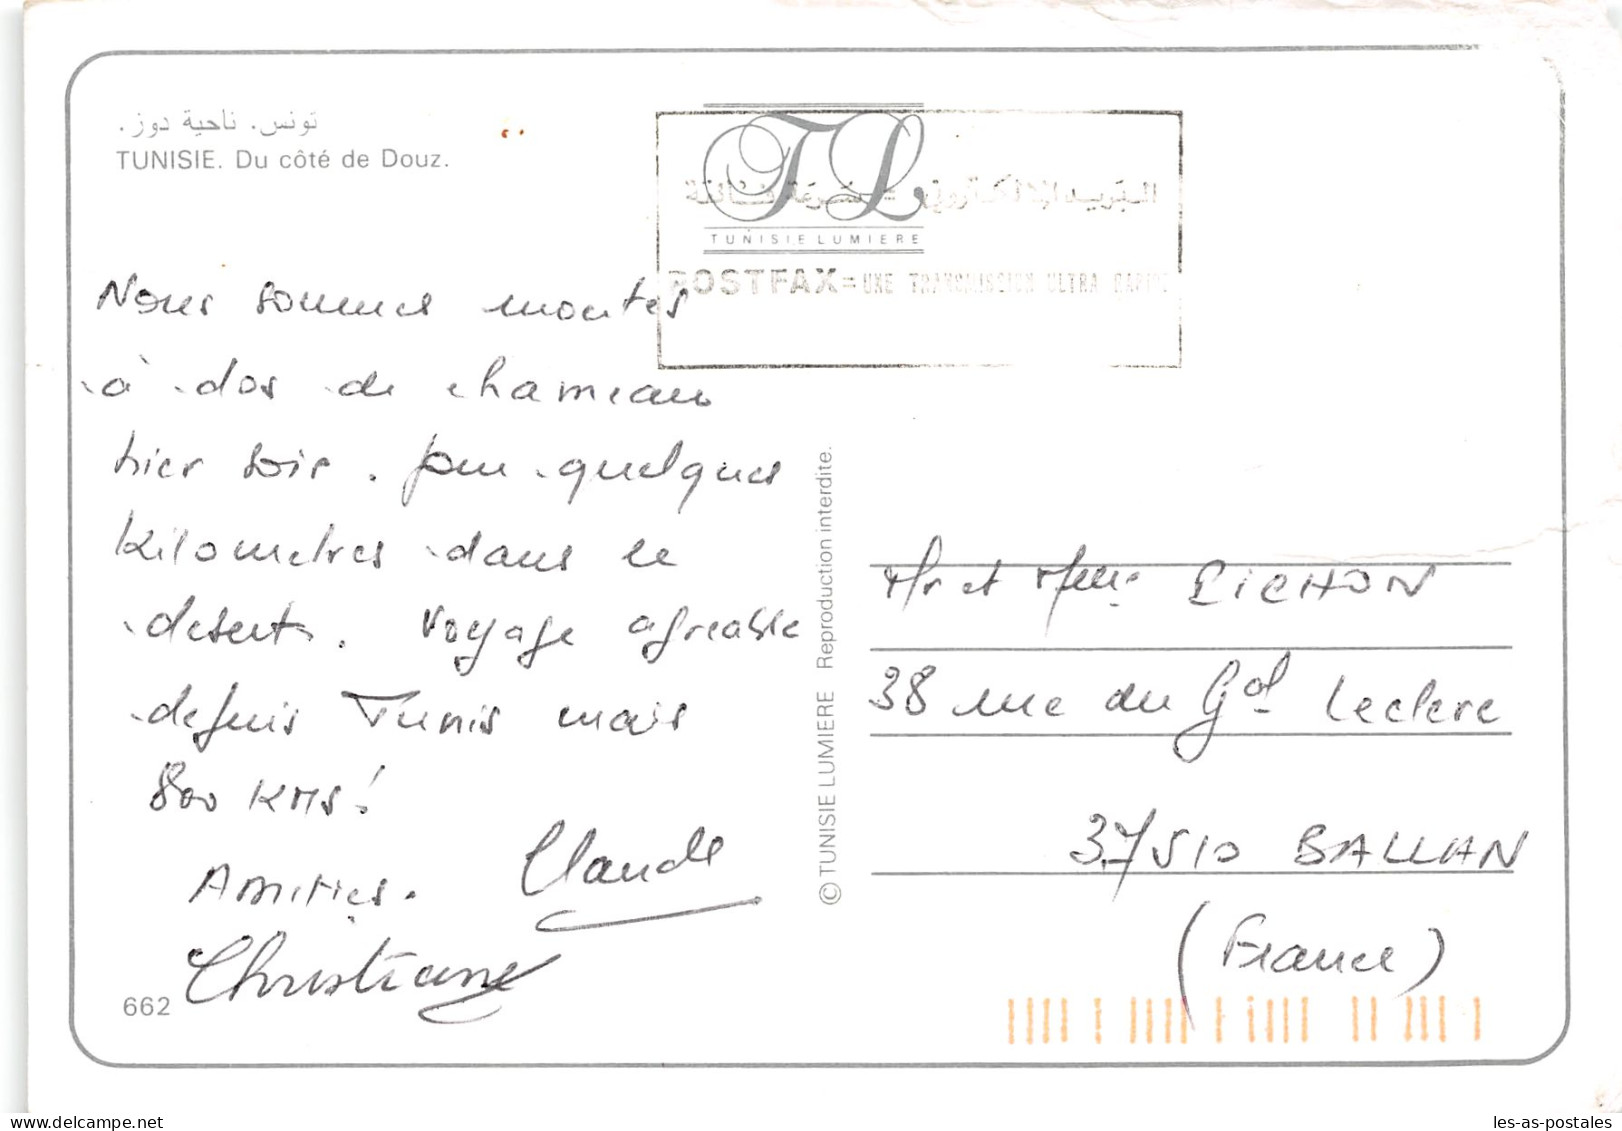 تونس. ناحية دوز.
TUNISIE. Du côté de Douz.
TL
TUNISIE LUMIERE
البريد الإلكتروني =
POSTFAX = UNE TRANSMISSION ULTRA RAPIDE
Nous sommes montés
à dos de chameau
hier soir. pour quelques
kilometres dans le
desert. Voyage agreable
depuis Tunis mais
800 KMS!
Amitiés. Claude
Christiane
662
© TUNISIE LUMIERE Reproduction interdite.
Mr et Mme PICHON
38 rue du Gal Leclerc
37510 BALLAN
(France)
les-as-postales
delcampe.net